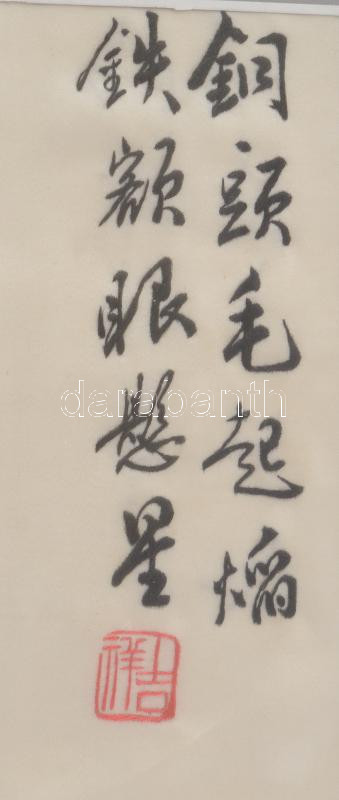 銅頭毛起焰
鉄額眼懸星
吉祥
darabanth